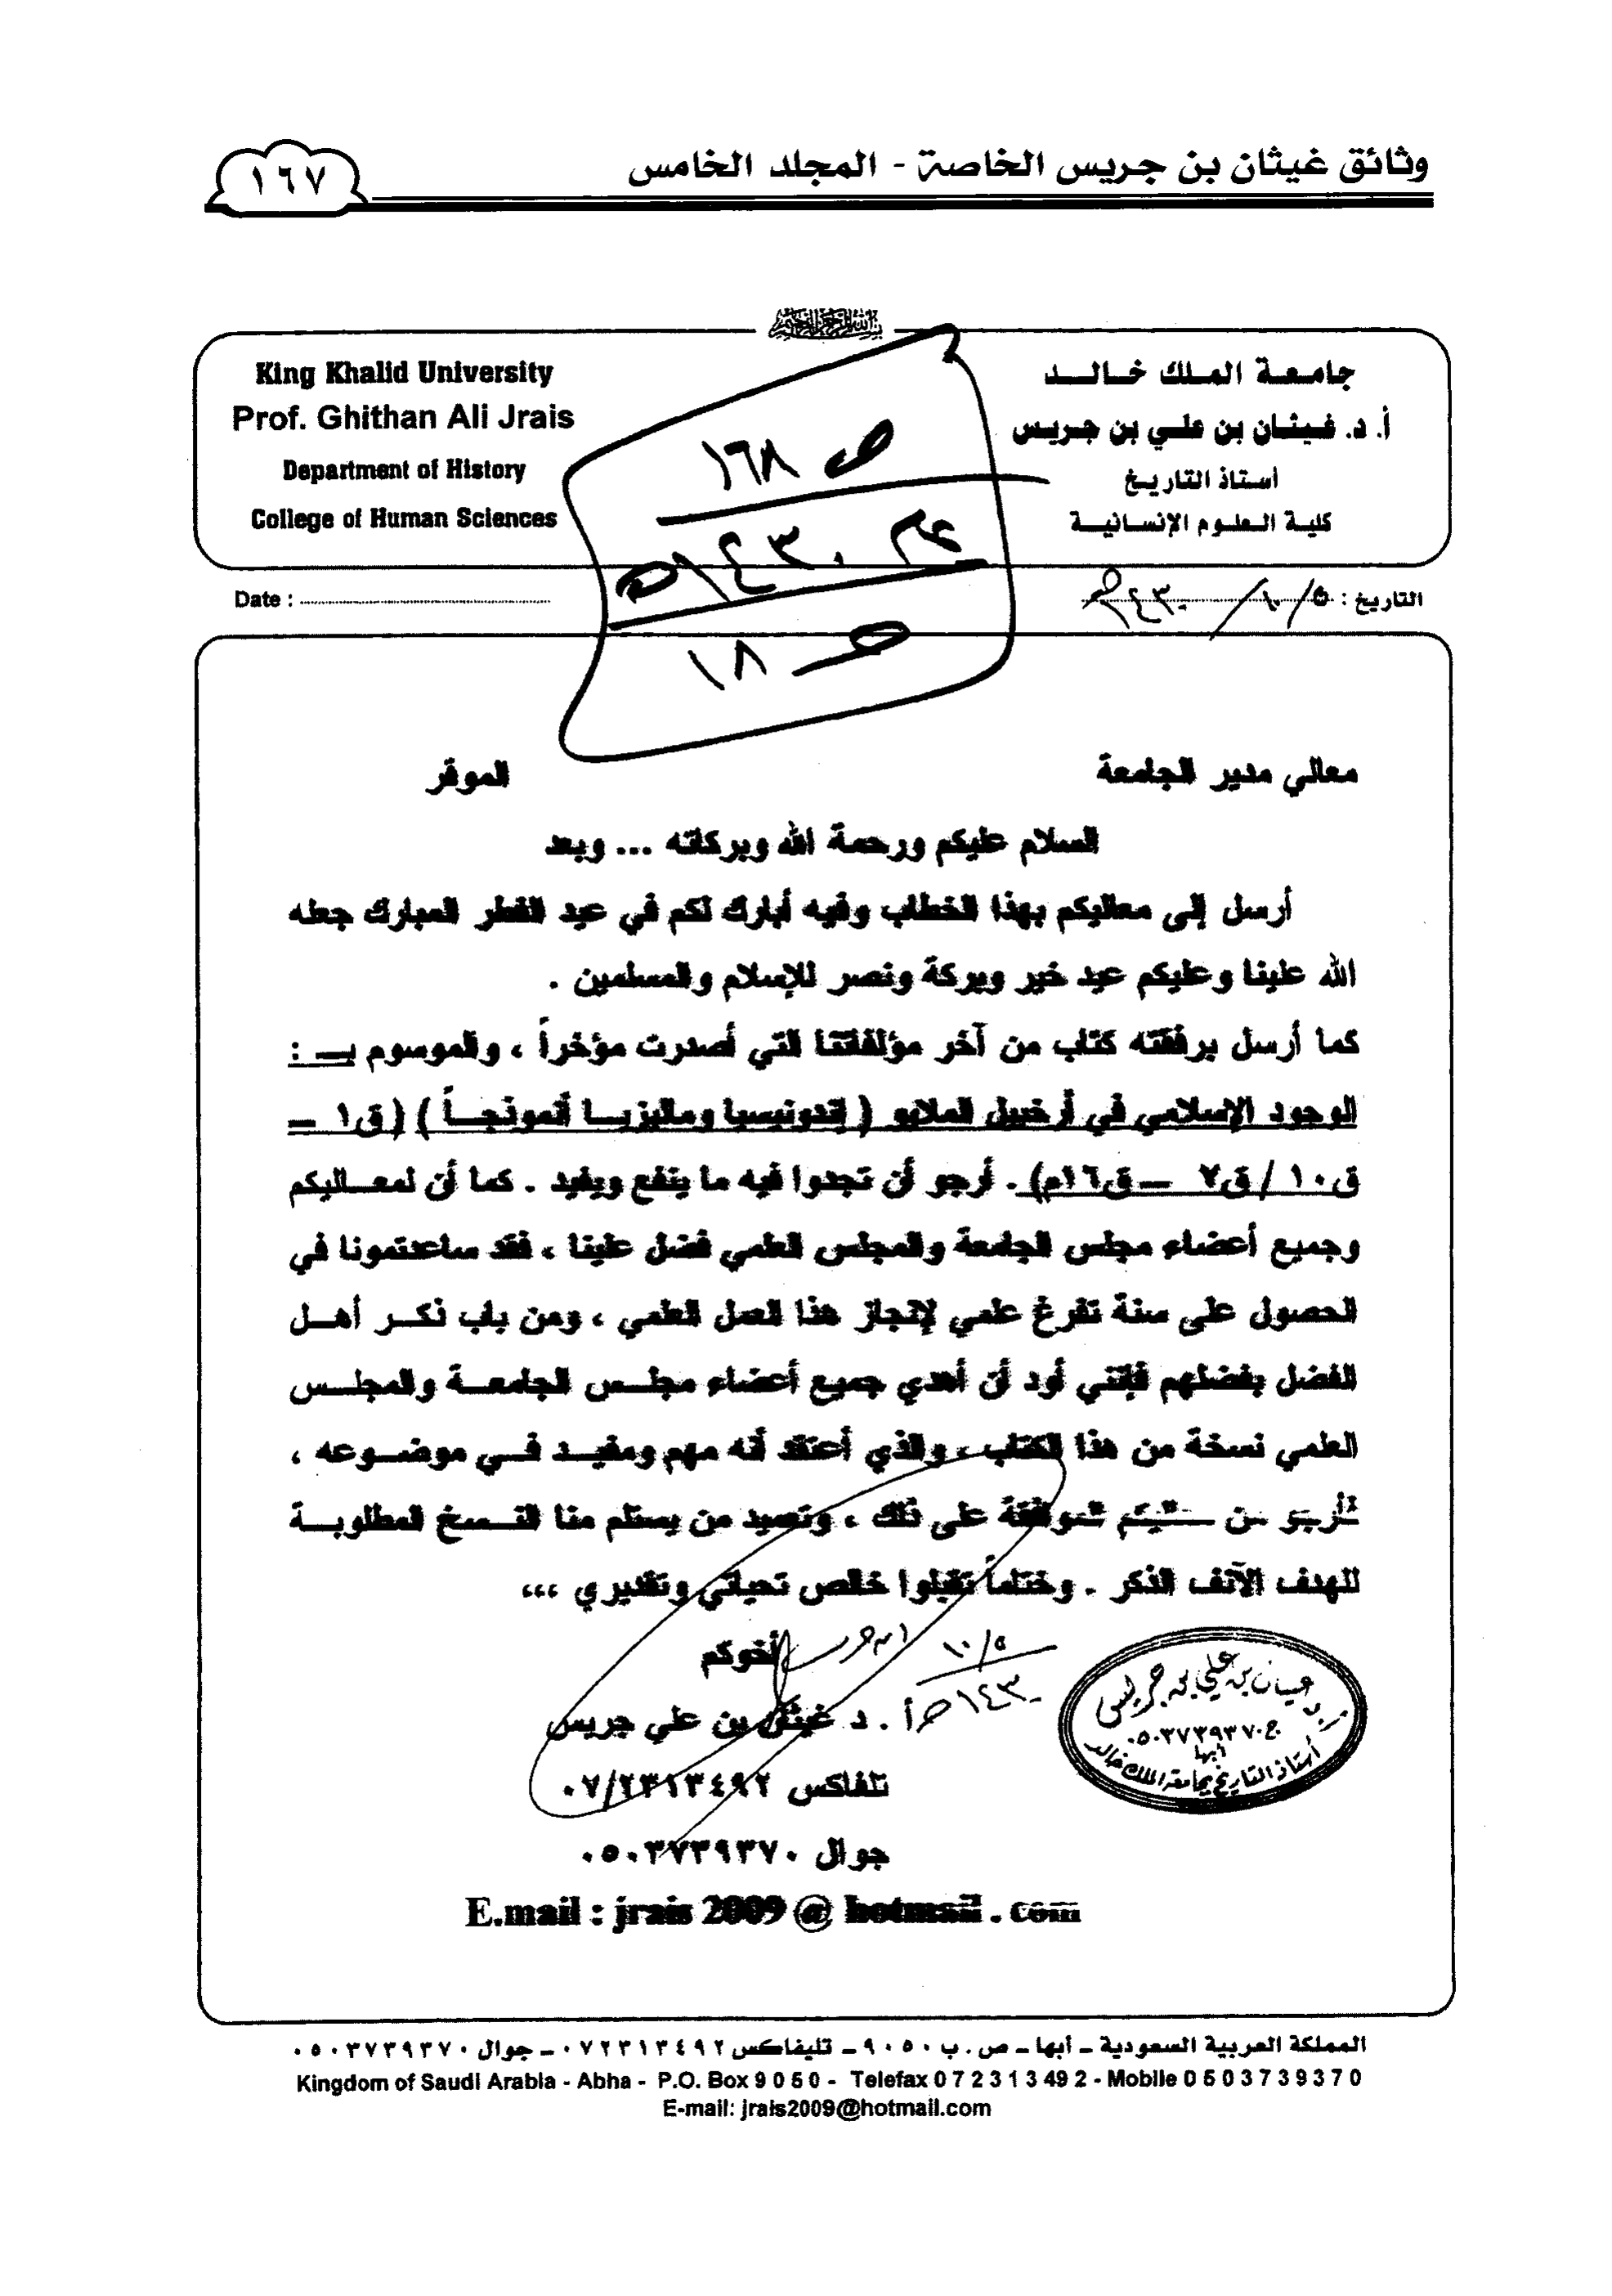 وثائق غيثان بن جريس الخاصة - المجلد الخامس
١٦٧
جامعة الملك خالد
أ. د. غيثان بن علي بن جريس
أستاذ التاريخ
كلية العلوم الإنسانية
King Khalid University
Prof. Ghithan Ali Jrais
Department of History
College of Human Sciences
ص ١٦٨
١٤٣٠هـ
ص ١٨
التاريخ : ٥/١٠/١٤٣٠هـ
Date :
معالي مدير الجامعة الموقر
السلام عليكم ورحمة الله وبركاته ... وبعد
أرسل إلى معاليكم بهذا الخطاب وفيه أبارك لكم في عيد الفطر المبارك جعله
الله علينا وعليكم عيد خير وبركة ونصر للإسلام والمسلمين .
كما أرسل برفقته كتاب من آخر مؤلفاتنا التي أصدرت مؤخراً ، والموسوم بـ :
الوجود الإسلامي في أرخبيل الملايو ( إندونيسيا وماليزيا أنموذجاً ) ( ق١ –
ق١٠ / ق٧ – ق١٦م) . أرجو أن تجدوا فيه ما ينفع ويفيد . كما أن لمعاليكم
وجميع أعضاء مجلس الجامعة والمجلس العلمي فضل علينا ، فقد ساعدتمونا في
الحصول على سنة تفرغ علمي لإنجاز هذا العمل العلمي ، ومن باب ذكر أهل
الفضل بفضلهم فإنني أود أن أهدي جميع أعضاء مجلس الجامعة والمجلس
العلمي نسخة من هذا الكتاب ، والذي أعتقد أنه مهم ومفيد في موضوعه ،
نأرجو من الموافقة على ذلك ، وتعميد من يستلم منا النسخ المطلوبة
للهدف الآنف الذكر . وختاماً تقبلوا خالص تحياتي وتقديري ...
أخوكم
٥/١٠
١٤٣٠هـ
أ . د غيثان بن علي جريس
تلفاكس ٠٧/٢٣١٣٤٩٢
جوال ٠٥٠٣٧٣٩٣٧٠
E.mail : jrais 2009 @ hotmail . com
أ.د غيثان بن علي بن جريس
ج ٠٥٠٣٧٣٩٣٧٠
أبها
أستاذ التاريخ بجامعة الملك خالد
المملكة العربية السعودية – أبها – ص . ب ٩٠٥٠ – تليفاكس ٠٧٢٣١٣٤٩٢ – جوال ٠٥٠٣٧٣٩٣٧٠
Kingdom of Saudi Arabia - Abha - P.O. Box 9 0 5 0 - Telefax 0 7 2 3 1 3 49 2 - Mobile 0 5 0 3 7 3 9 3 7 0
E-mail: jrais2009@hotmail.com